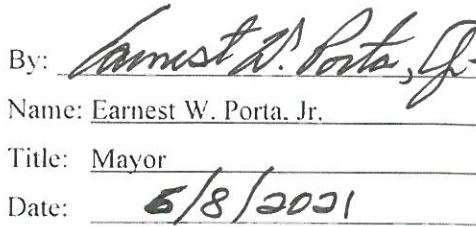 By: Earnest W. Porta, Jr.
Name: Earnest W. Porta, Jr.
Title: Mayor
Date: 6/8/2021